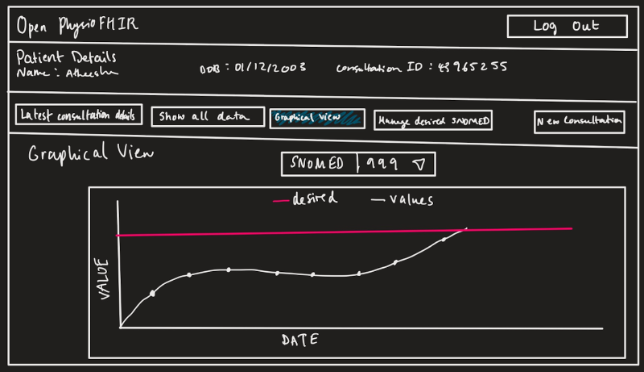 Open PhysioFHIR
Log Out
Patient Details
Name: Atheeshu DOB: 01/12/2003 Consultation ID: 43965255
Latest consultation details Show all data Graphical view Manage desired SNOMED New Consultation
Graphical View
SNOMED 999
desired values
VALUE
DATE